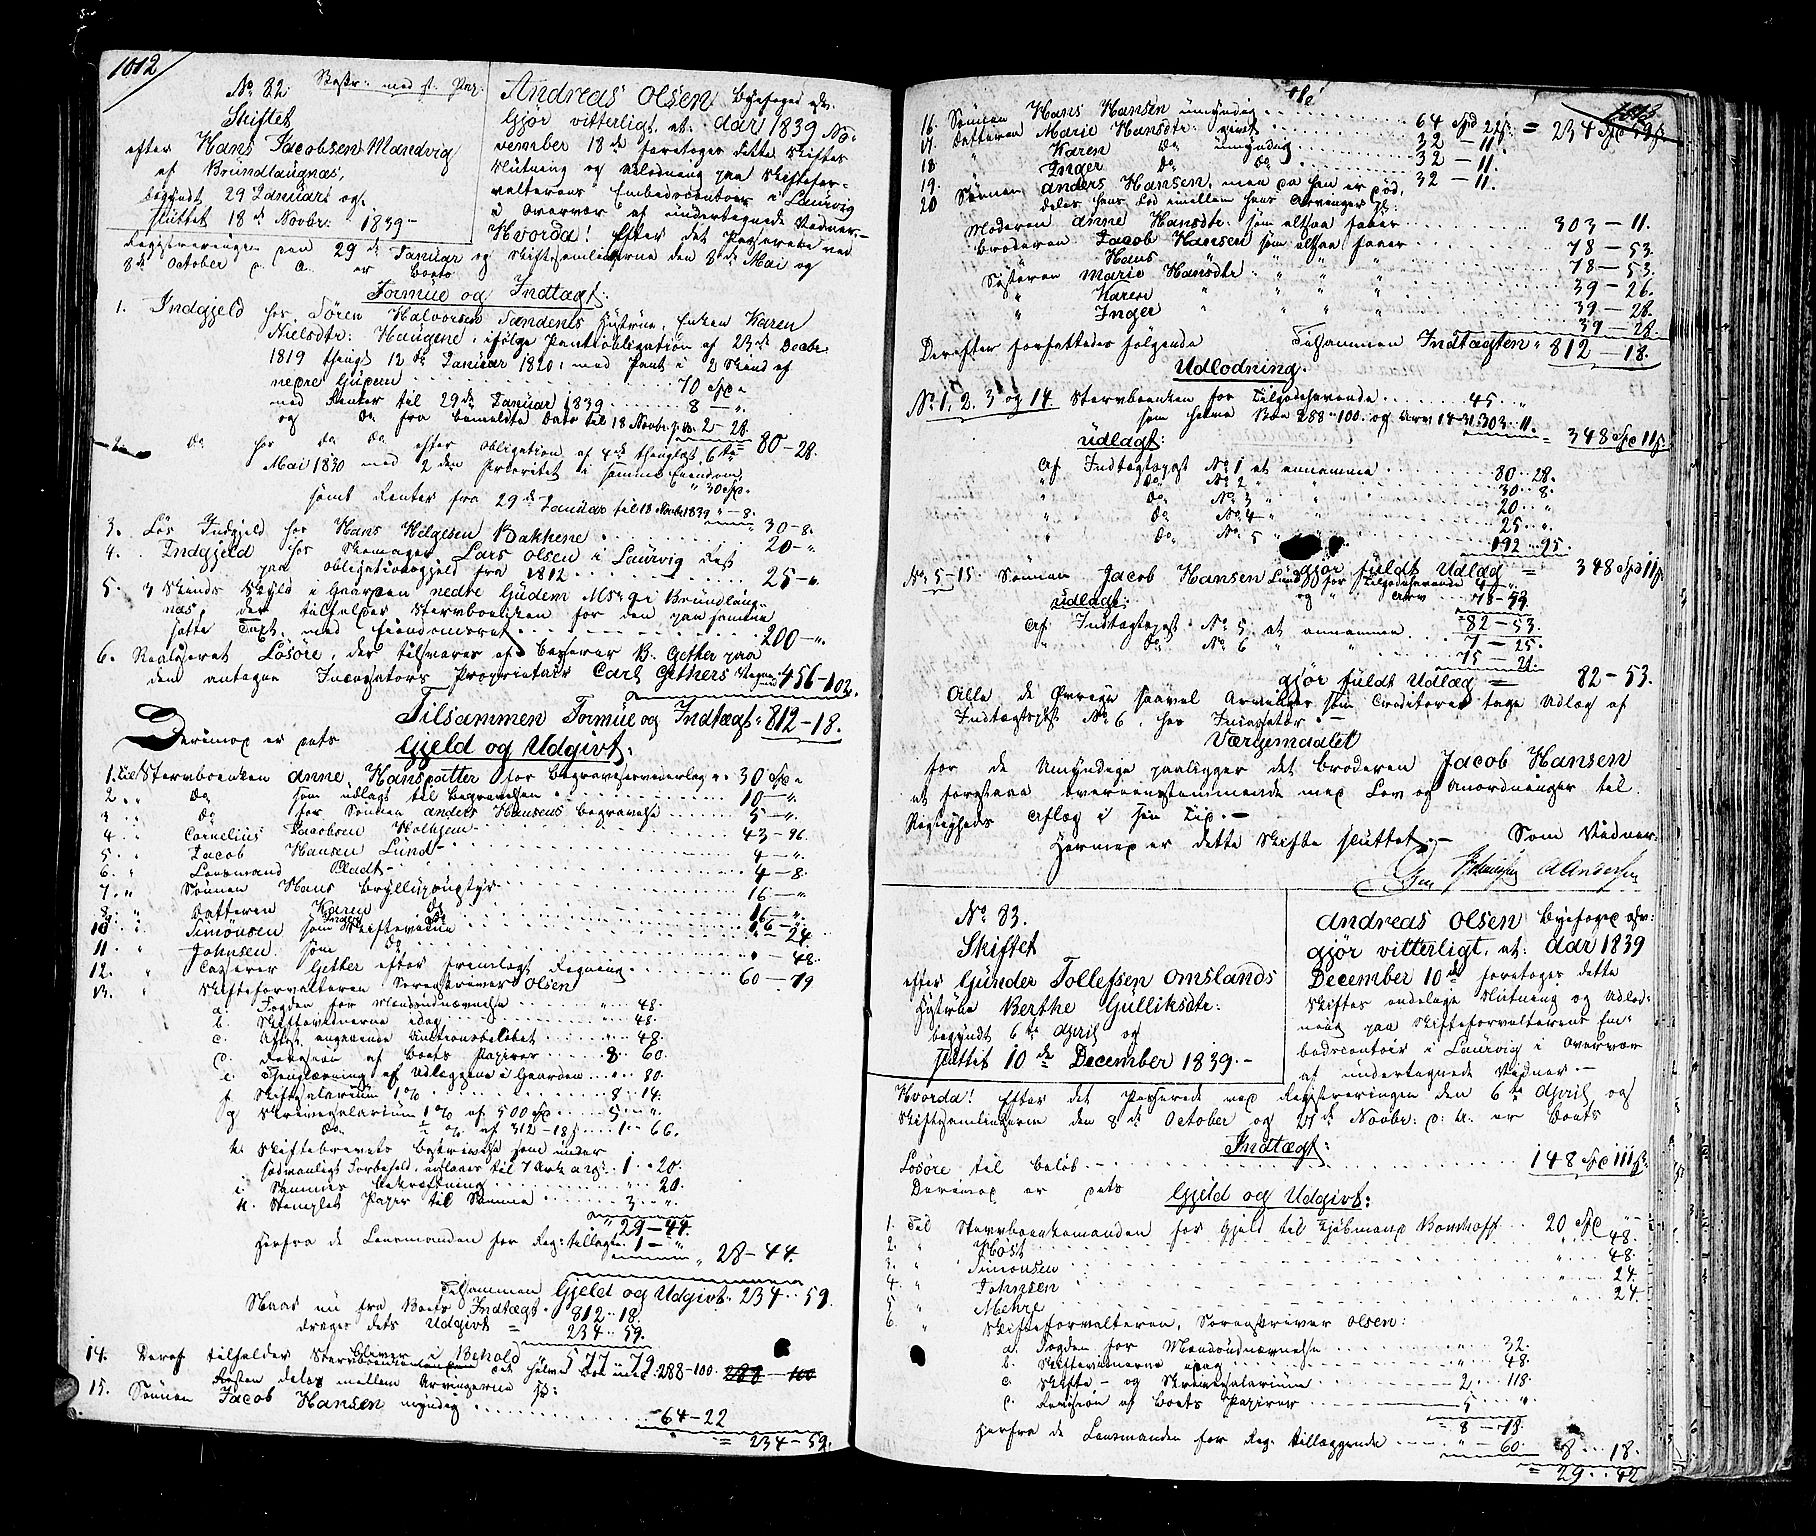 1012
No 82. Bestr: med st. Pap:
Skiftet
efter Hans Jacobsen Mandvig
af Brundlaugnæs,
begyndt 29 Januari og
sluttet 18de Novbr: 1839 -
Andreas Olsen Byefoged
Gjør vitterligt, at: Aar 1839 No-
vember 18de foretoges dette Skiftes
Slutning og Udlodning paa Skiftefor-
valterens Embedscontoir i Laurvig
i Overvær af undertegnede Vidner. -
Hvorda! Efter det Passerede ved
Registreringen den 29de Januar og Skiftesamlingerne den 8de Mai og
8de October d. A. er Boets
Formue og Indtægt:
1. Indgjeld hos Søren Halvorsen Sandenes Hustrue, Enken Karen
Nielsdtr: Haugene, ifølge Pantobligation af 23de Decbr
1819 thinglt 12de Januar 1820, med Pant i 2 Skind af
nedre Gusum 70 Spd
med Renter til 29de Januar 1839 8 - "
og do fra bemeldte Dato til 18 Novbr 2 - 28. 80 - 28.
2. do hos do do efter Obligation af 4de thinglæst 6te
Mai 1830 med 2den Prioritet i samme Eiendom
30 Spd.
samt Renter fra 29de Januar til 18 Novbr 1839 " - 8. 30 - 8.
3. Løs Indgjeld hos Hans Helgesen Bakkene 20 - "
4. Indgjeld hos Skomager Lars Olsen i Laurvig Rest
paa Obligationsgjeld fra 1812 25 - "
5. 4 Skinds Skyld i Gaarden nedre Gudem i Brundlaug-
næs, der tilfalder Sterboenken for den paa samme
satte Taxt, med Eiendomsret 200 - "
6. Realiseret Løsøre, der tilsvares af Casserer B. Gether paa
den antagne Incassators Proprietair Carl Gethers Vegne 456 - 102.
Tilsammen Formue og Indtægt 812 - 18.
Derimod er dets Gjeld og Udgivt:
1. Til Sterboenken Anne Hansdatter for Begravelsesudlæg 30 Spd "
2. " do som udlagt til Begravelsen 10 - "
3 " do for Sønnen Anders Hansens Begravelse 5 - "
4 " Cornelius Jacobsen Holhjem 43 - 96.
5 " Jacob Hansen Lund 4 - "
6 " Lensmand Bladt 4 - 8.
7 " Sønnen Hans Bryllupsudstyr 16 - "
8 " Datteren Karen do 16 - "
9 " Inger do 16 -
10 " Simonsen som Skiftevidne " - 24
11 " Johnsen som do " - 48.
12. " Casserer Gether efter fremlagt Regning 60 - 79
13. " Skifteforvalteren Sorenskriver Olsen
a. Fogden for Mændsudnævnelse " 48.
b. Skiftevidnerne idag " 48.
c. Attest angaaende Auctionsbeløbet " 48.
d. Revision af Boets Papirer 8. 60.
e. Thinglæsning af Udlæggene i Gaarden " 80.
f Skiftsalarium 1% 8. 14.
g Skriversalarium 1% af 500 Spd 5. "
do ½ % af 312 - 18 ß 1. 66.
h. Skiftebrevets Beskrivelse som under
sædvanligt Forbehold, anslaaes til 7 Ark a 20 ß 1. 20.
i. Sammes Bekræftning " 20.
k. Stemplet Papir til Samme 3. "
29 - 44.
Herfra de Lensmanden for Reg: tillagte 1 - " 28 - 44.
Tilsammen Gjeld og Udgivt 234 . 59.
Naar nu fra Boets Indtægt 812 . 18.
drages dets Udgivt = 234 . 59.
Bliver i Behold 577 . 79.
14. Deraf tilfalder Sterboenken det halve Boe med 288 - 100. 288 - 100
Resten deles mellem Arvingerne s:
15. Sønnen Jacob Hansen myndig 64 - 22
= 234 - 59.
1013
16. Sønnen Hans Hansen umyndig 64 Spd 22 ß = 234 Spd 59 ß
17. Datteren Marie Hansdtr. givt 32 - 11.
18 " Karen do umyndig 32 - 11.
19. " Inger do do 32 - 11.
20 Sønnen Anders Hansen, men da han er død,
deles hans Lod imellem hans Arvinger s:
Moderen Anne Hansdtr. som altsaa faaer 303 - 11.
Broderen Jacob Hansen som altsaa faaer 78 - 53.
" Hans " " " " 78 - 53.
Søsteren Marie Hansdtr " " " 39 - 26.
" Karen " " " " 39 - 28.
" Inger " " " " 39 - 28.
Tilsammen Indtægten 812 - 18.
Derefter forfattedes følgende
Udlodning.
No 1. 2. 3 og 14 Sterboenken for Tilgodehavende 45 "
som halve Boe 288 - 100. og Arv 14 - 31. 303 . 11. = 348 Spd 11 ß
Udlagt:
Af Indtægtspost No 1 at annamme 80 . 28.
" do No 2 " " 30 . 8.
" do No 3 " " 20 . "
" do No 4 " " 25 . "
" do No 5 " " 192 . 95.
gjør fuldt Udlæg = 348 Spd 11 ß
No 5 - 15 Sønnen Jacob Hansen Lund for Tilgodehavende 4 - "
og " " Arv 78 - 53.
82 - 53.
Udlagt:
Af Indtægtspost No 5 at annamme 7 - 25.
" do No 6 " " 75 - 28.
gjør fuldt Udlæg = 82 - 53.
Alle de Øvrige saavel Arvinger som Creditorer tage Udlæg af
Indtægtspost No 6, hos Incassator. -
Værgemaalet
for de Umyndige paaligger det Broderen Jacob Hansen
at forestaae overeensstemmende med Lov og Anordninger til
Rigtigheds Aflæg i sin Tid. -
Hermed er dette Skifte sluttet. - Som Vidner.
No 83.
Skiftet
efter Gunder Tollefsen Omslands
Hustrue Berthe Gulliksdtr:
begyndt 6te April og
sluttet 10de December 1839. -
Andreas Olsen Byefoged
gjør vitterligt, at: Aar 1839
December 10de foretoges dette
Skiftes endelige Slutning og Udlod-
ning paa Skifteforvalterens Em-
bedscontoir i Laurvig i Overvær
af undertegnede Vidner. -
Hvorda! Efter det Passerede ved Registreringen den 6te April og
Skiftesamlingerne den 8de October og 21de Novbr: d: A. er Boets
Indtægt:
Løsøre til Beløb 148 Spd 111 ß
Derimod er dets Gjeld og Udgivt:
1. Til Sterboenkemanden for Gjeld til Kjøbmand Bomhoff 20 Spd "
2. " Høst " 48.
3. " Simonsen " 48.
4. " Johnsen " 24.
5 " Mehre " 24.
6. " Skifteforvalteren, Sorenskriver Olsen:
a. Fogden for Mændsudnævnelse " 32.
b. Skiftevidnerne idag " 48.
c. Skifte- og Skriversalarium 2. 118.
d. Revision af Boets Papirer 5 "
= 8 - 78.
Herfra de Lensmanden for Reg: tillæggende " - 60. 8 . 18.
= 29 . 42